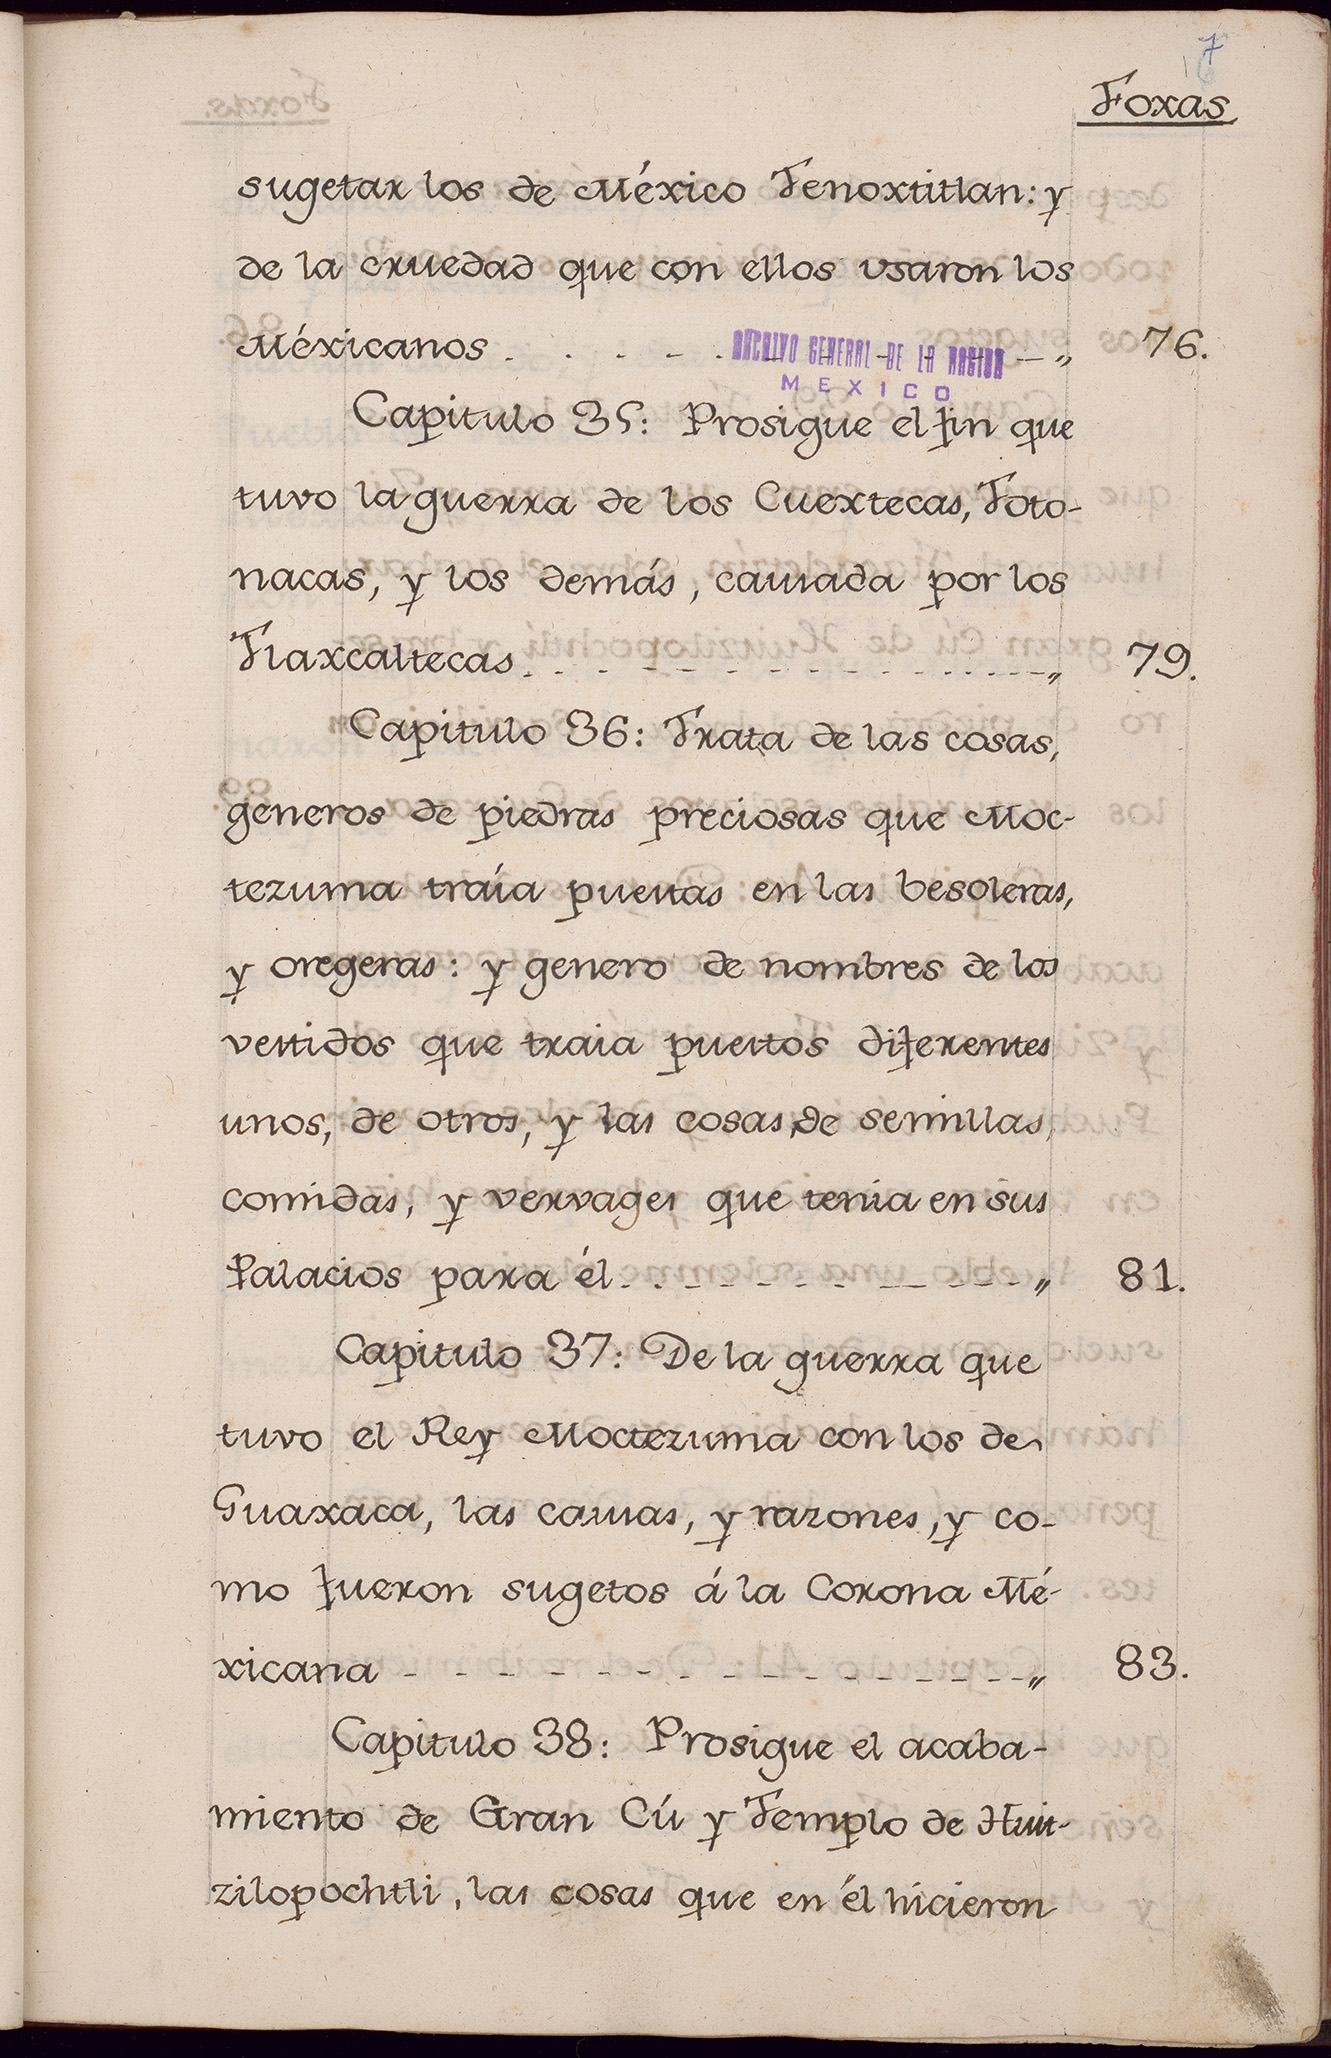 7
Foxas
sugetar los de México Tenoxtitlan: y
de la cruedad que con ellos usaron los
Méxicanos . . . . . . . . . . . . „ 76.
ARCHIVO GENERAL DE LA NACION
MEXICO
Capitulo 35: Prosigue el fin que
tuvo la guerra de los Cuextecas, Toto-
nacas, y los demás, causada por los
Tlaxcaltecas . . . . . . . . . . . . „ 79.
Capitulo 36: Trata de las cosas,
generos de piedras preciosas que Moc-
tezuma traía puestas en las besoleras,
y oregeras: y genero de nombres de los
vestidos que traia puestos diferentes
unos, de otros, y las cosas de semillas,
comidas, y vervages que tenia en sus
Palacios para él . . . . . . . . . . . „ 81.
Capitulo 37: De la guerra que
tuvo el Rey Moctezuma con los de
Guaxaca, las causas, y razones, y co-
mo fueron sugetos á la Corona Mé-
xicana - - - - - - - - - - - - - „ 83.
Capitulo 38: Prosigue el acaba-
miento de Gran Cú y Templo de Huit-
zilopochtli, las cosas que en él hicieron